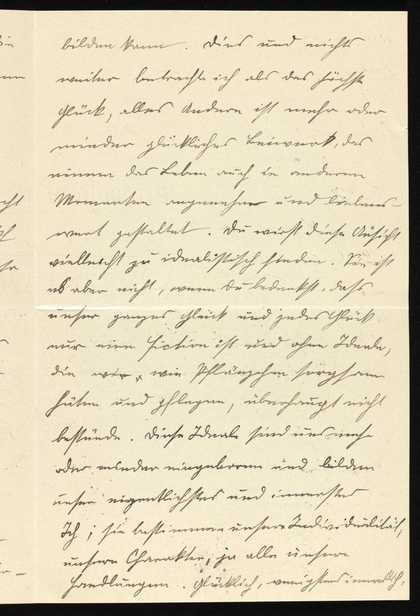 bilden kann. Dies und nichts
weiter betrachte ich als das höchste
Glück, alles Andere ist mehr oder
minder glückliches Beiwerk, das
einem das Leben auch in anderen
Momenten angenehm und liebens-
wert gestaltet. Du wirst diese Ansicht
vielleicht zu idealistisch finden. Sie ist
es aber nicht, wenn Du bedenkst, dass
unser ganzes Glück und jedes Glück
nur eine Fiction ist und ohne Ideale,
die wir, wie Pflänzchen sorgsam
hüten und pflegen, überhaupt nicht
bestünde. Diese Ideale sind uns mehr
oder minder eingeboren und bilden
unser eigentlichstes und innerstes
Ich; sie bestimmen unsere Individualität,
unseren Charakter, ja alle unsere
Handlungen. Glücklich, wenigstens innerlich